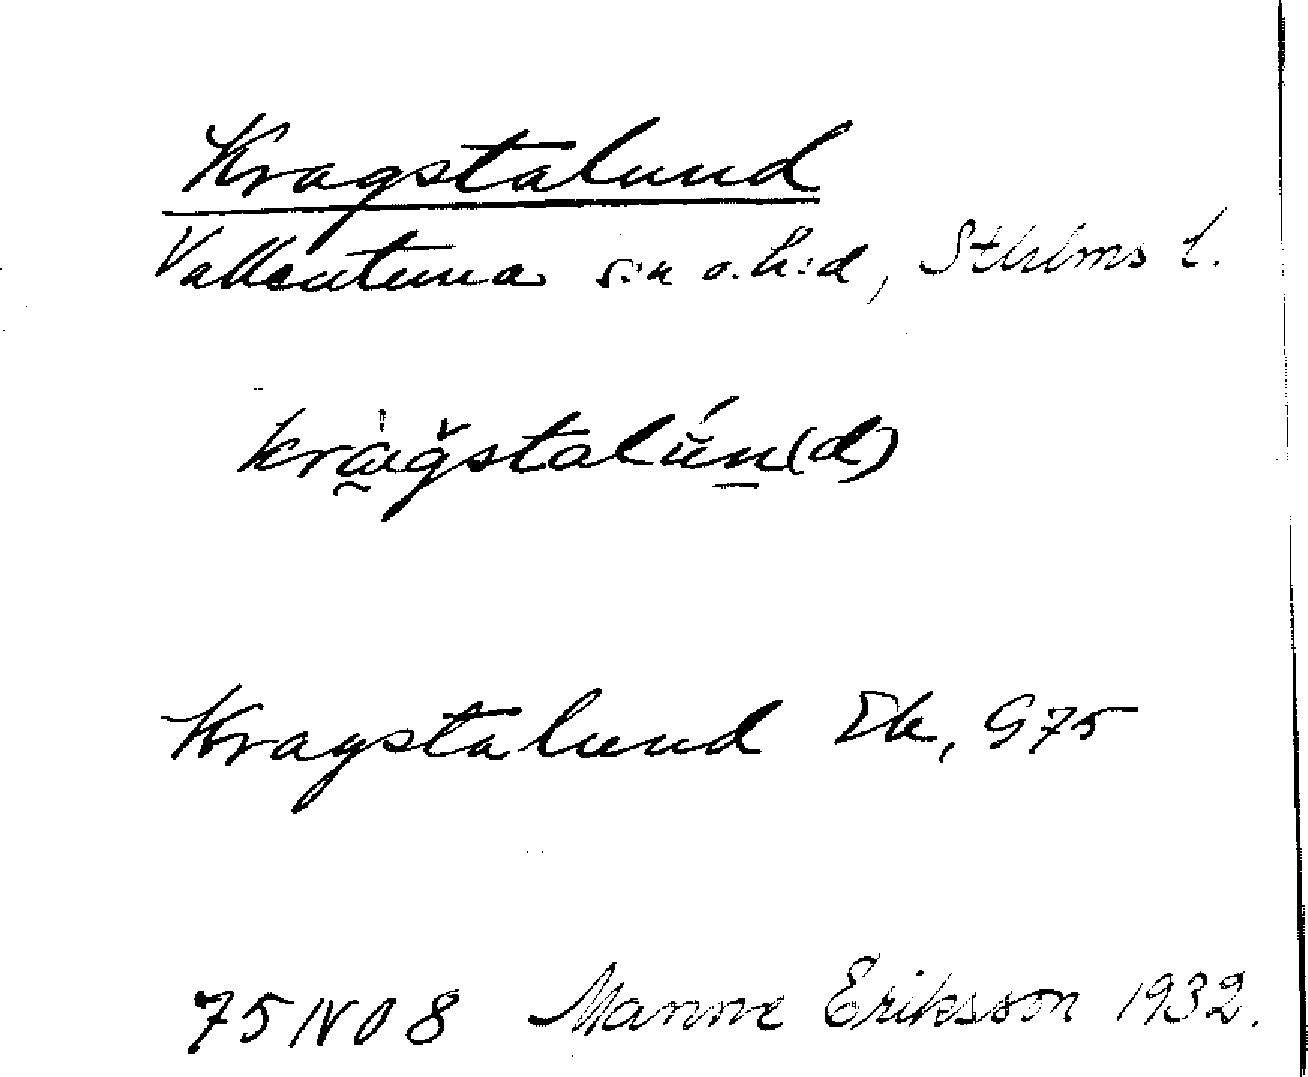 Kragstalund
Vallentuna s:n o. h:d, Sthlms l.
krägstalún(d)
Kragstalund Ek, G75
75 IV 0 8 Manne Eriksson 1932.